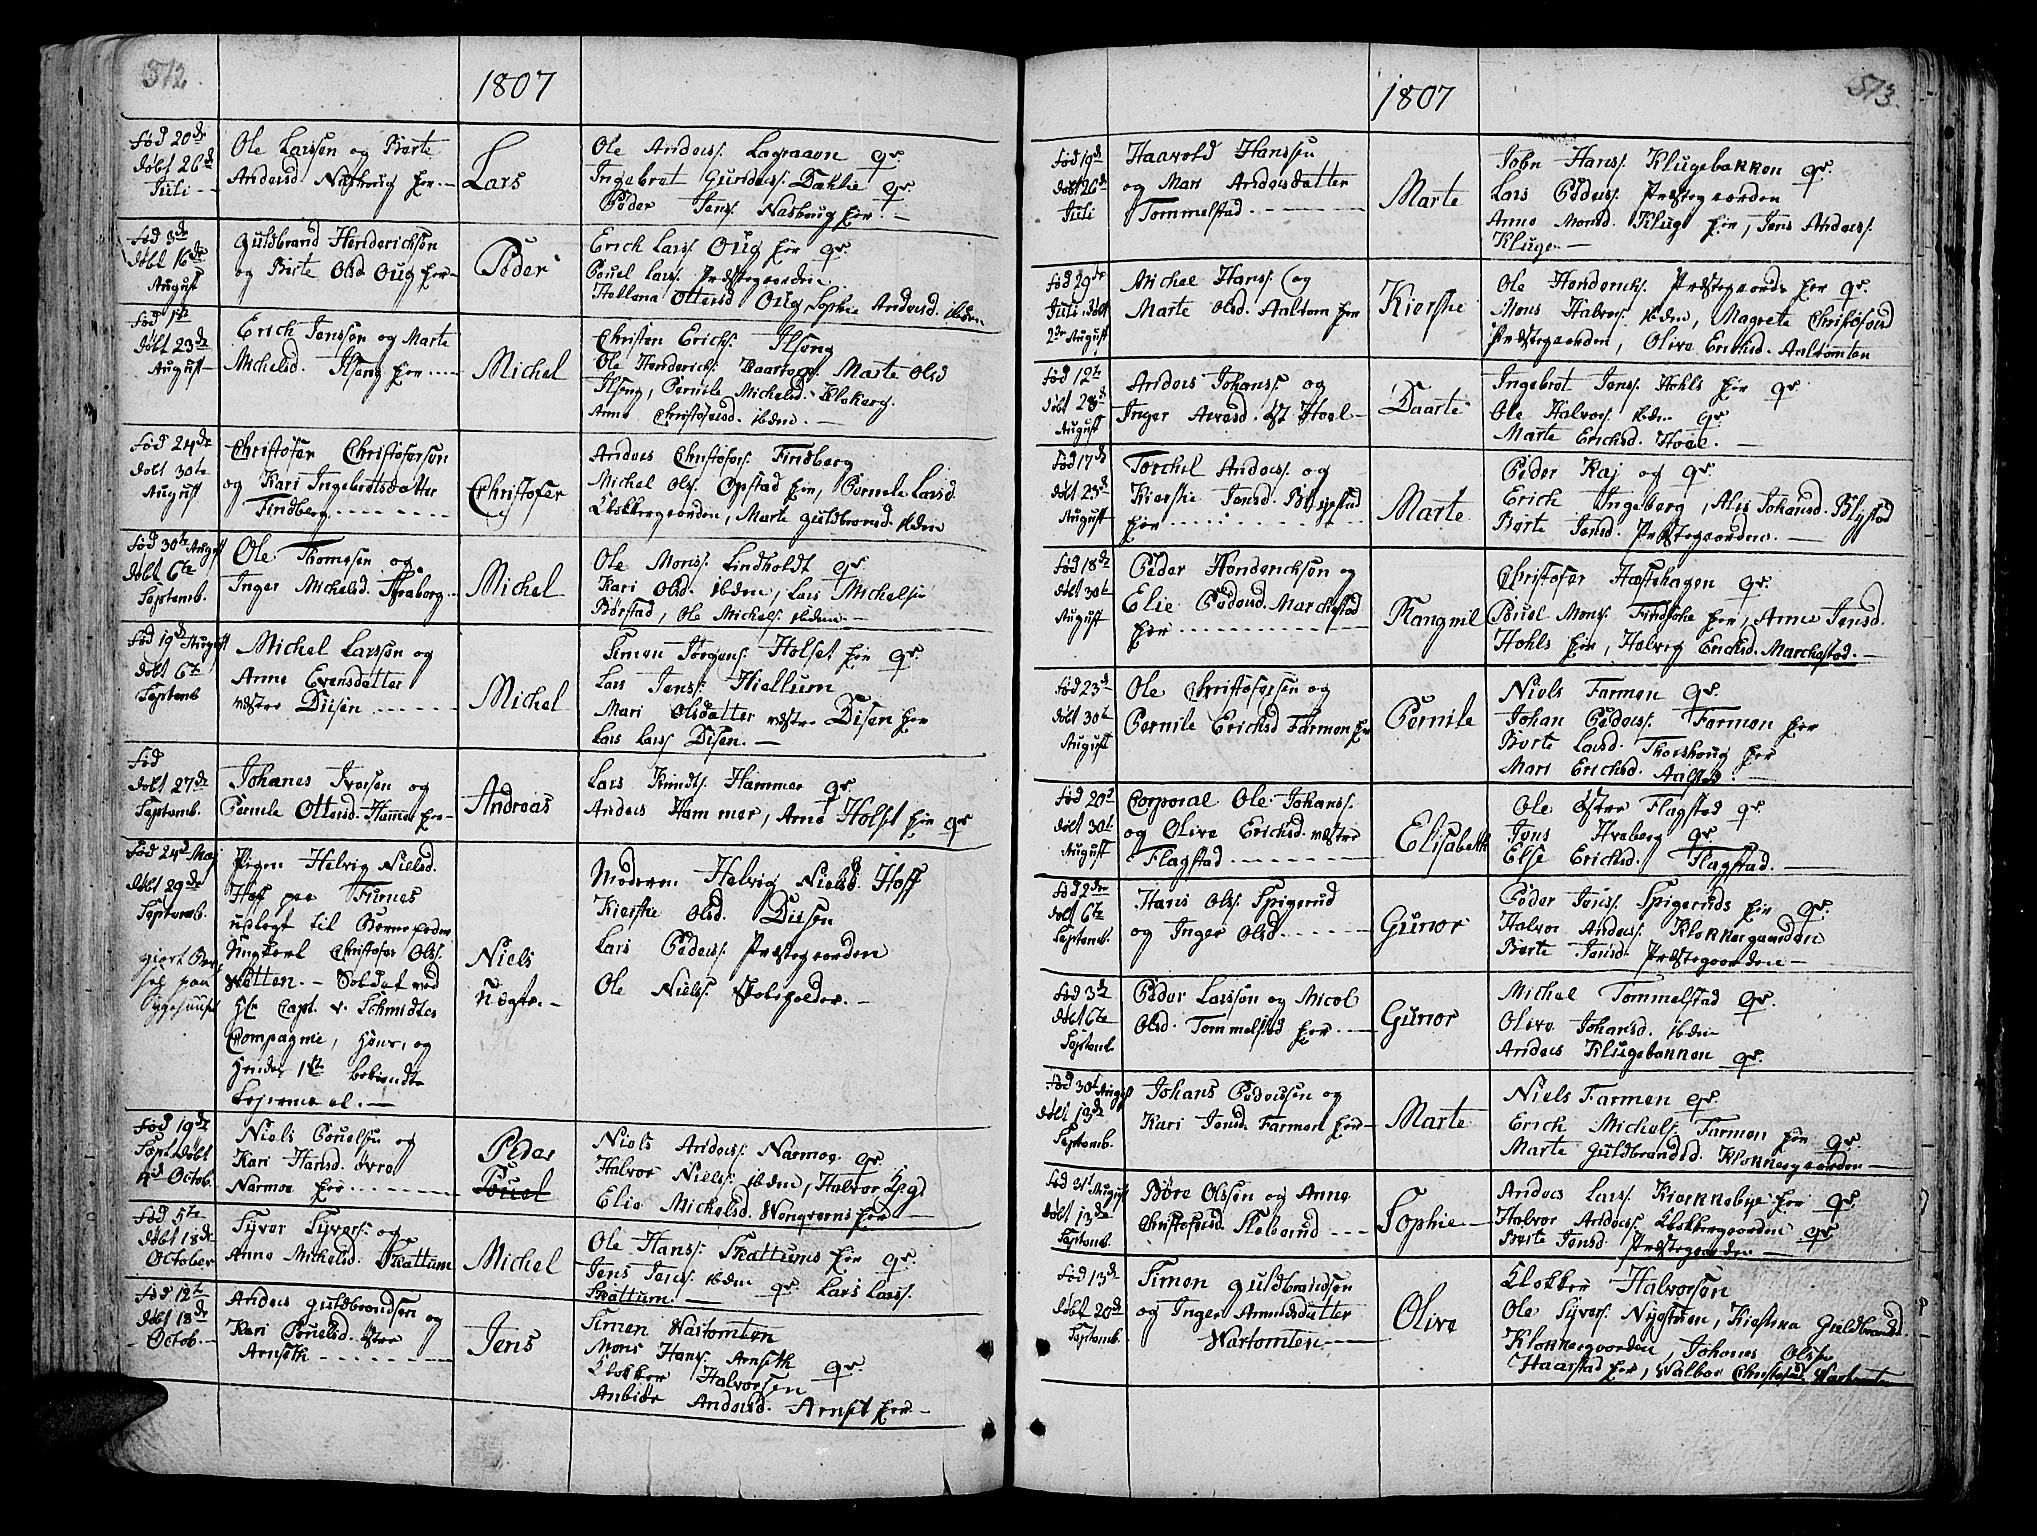 512.
1807
Fød 20de
døbt 26de
Juli
Ole Larssen og Berte
Andersd Næshoug her
Lars
Ole Anders: Lagraavn qr.
Ingebret Gunders: Dahlie qr
Peder Jens: Nashoug her
Fød 3de
døbt 16de
August
Guldbrand Henderichsen
og Birte Olsd Oug her
Peder
Erich Lars: Oug her qr.
Pouel Lars: Præstegaarden
Hellena Ottersd Oug, Sophie Andersd. ibden
Fød 1te
døbt 23de
August
Erich Jenssen og Marte
Michelsd. Ilseng her
Michel
Christen Erichs: Ilseng
Ole Henderichs: Kaartorp, Marte Olsd
Ilseng, Pernile Michelsd. Kloberg
Anne Christofersd. ibden.
Fød 24de
døbt 30te
August
Christofer Christofersen
og Kari Ingebretsdatter
Findberg
Christofer
Anders Christofers: Findberg
Michel Ols: Opstad her, Pernele Larsd
Klokkergaarden, Marte Guldbransd. ibden
Fød 30te August
døbt 6te
Septemb.
Ole Thomesen og
Inger Michelsd. Hraberg
Michel
Ole Mons: Lindholdt qr.
Kari Olsd. ibden, Lars Michelsen
Børstad, Ole Michels: ibden
Fød 19de August
døbt 6te
Septemb
Michel Larssen og
Anne Evensdatter
vestre Disen
Michel
Simen Jørgens: Holset her qr.
Lars Jens: Hiellum
Mari Olsdatter vestre Disen her
Lars Lars: Disen.
Fød
døbt 27de
Septemb.
Johanes Iversen og
Pernele Ottersd. Hammer her
Andreas
Lars Knudts: Hammer qr.
Anders Hammer, Arne Holset her qr
Fød 24de Maj
døbt 29de
Septemb.
giort
sig paa
Sygehuuset
Pigen Helvig Nielsd.
Hoff paa Furnes
udlagt til Barnefader
Ungkarl Christofer Ols:
Watten. - Soldat ved
Hr. Capt. v. Schmidtes
Compagnie, hans, og
hendes 1ste bekiendte
Lejermaal.
Niels
Uægte.
Moderen Helvig Nielsd. Hoff
Kierstie Olsd. Disen
Lars Peders: Præstegaarden
Ole Niels: Skoleholder.
Fød 19de
Sept. døbt
4de Octob.
Niels Pouelsen og
Kari Hansd. øvre
Narmoe her
Peder
Pouel
Niels Anders: Narmoe. qr.
Halvor Niels: ibden, Halvor
Elie Michelsd. Wongverns her
Fød 5te
døbt 18de
October
Syver Syvers: og
Anne Michelsd. Skattum
Michel
Ole Hans: Skattums her qr.
Jens Jens: ibden qr. Lars Lars:
Skattum.
Fød 12te
døbt 18de
Octob.
Anders Guldbrandsen og
Kari Pouelsd. østre
Arnseth
Jens
Simen Wartomten
Mons Hans: Arnseth
Klokker Halvorsen qr.
Anbiør Andersd. Arnset her
513.
1807
Fød 19de
døbt 26de
Juli
Haavold Hanssen
og Mari Andersdatter
Tommelstad
Marte
John Hans: Klugebakken qr.
Lars Peders: Præstegaarden
Anne Monsd. Kluge her, Jens Anders:
Kluge
Fød 29de
Juli, døbt
2den August
Michel Hans: og
Marte Olsd. Aaltom her
Kierstie
Ole Henderichs: Præstegaards her qr.
Mons Halvors: ibden, Magrete Christofersd
Præstegaarden, Olive Erichsd. Aaltomten
Fød 12te
døbt 23de
August
Anders Johans: og
Inger Arvesd. øst Hoel
Daarte
Ingebret Jens: Hohls her qr
Ole Halvors: ibden qr
Marte Erichsd. Hoel.
Fød 17de
døbt 23de
August
Torchel Anders: og
Kierstie Jensd. Blystad
her
Marte
Peder Kaj og qr.
Erich Ingeberg, Alis Johansd. Blystad
Berte Jensd. Præstegaarden.
Fød 18de
døbt 30te
August
Peder Henderichsen og
Elie Pedersd. Marchestad
her
Rangnil
Christofer Hastehagen qr.
Pouel Mons: Findsohe her, Anne Jensd.
Hohls her, Helvig Erichsd. Marchestad.
Fød 23de
døbt 30te
August
Ole Christofersen og
Pernile Erichsd Farmen her
Pernile
Niels Farmen qr.
Johan Peders: Farmen her
Berte Larsd. Thorshoug her
Mari Erichsd.
Fød 20de
døbt 30te
August
Corporal Ole Johans:
og Olive Erichsd. vestre
Flagstad
Elisabeth
Ole østre Flagstad qr.
Jens Hraberg qr
Else Erichsd. Flagstad.
Fød 2den
døbt 6te
Septemb.
Hans Ols: Spigerud
og Inger Olsd.
Gunor
Peder Jens: Spigeruds her qr.
Halvor Anders: Klokkergaarden
Berte Jensd. Præstegaarden
Fød 3de
døbt 6te
Septemb.
Peder Larssen og Nicol
Olsd. Tommelstad her.
Gunor
Michel Tommelstad qr.
Olive Johansd. ibden
Anders Klugebakken qr.
Fød 30te August
døbt 13de
Septemb.
Johans Pederssen og
Kari Jensd. Farmen her
Marte
Niels Farmen qr.
Erich Michels: Farmen her qr
Marte Guldbrandsd. Klokkergaarden
Fød 31te August
døbt 13de
Septemb.
Børe Olssen og Anne
Christofersd. Slebrud
Sophie
Anders Lars: Kierkebye her qr.
Halvor Anders: Klokkergaarden qr
Berte Jensd. Præstegaarden
Fød 13de
døbt 20de
Septemb.
Simen Guldbrandsen
og Inger Amundsdatter
Wartomten
Olive
Klokker Halvorsen
Ole Syvers: Nygstuen, Kiestina Guldbrandsd.
Klokkergaarden, Johanes Olsen
Haarstad her, Walbor Christofersd. Wartomten